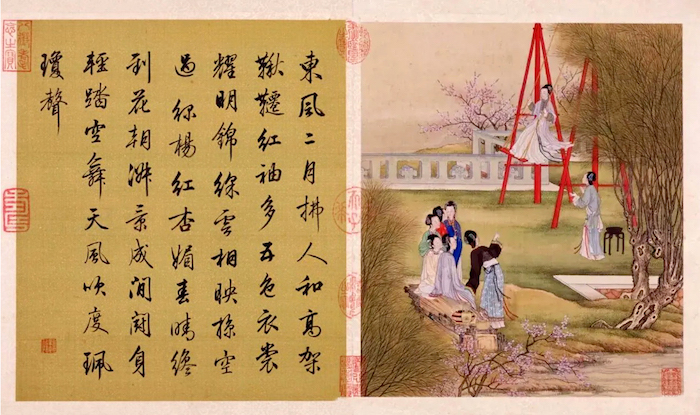 東風二月拂人和高架
鞦韆紅袖多五色衣裳
耀明錦綵雲相映掠空
過綠楊紅杏媚春晴纔
到花朝淑景成閒鬪身
輕踏空舞天風吹度珮
瓊聲